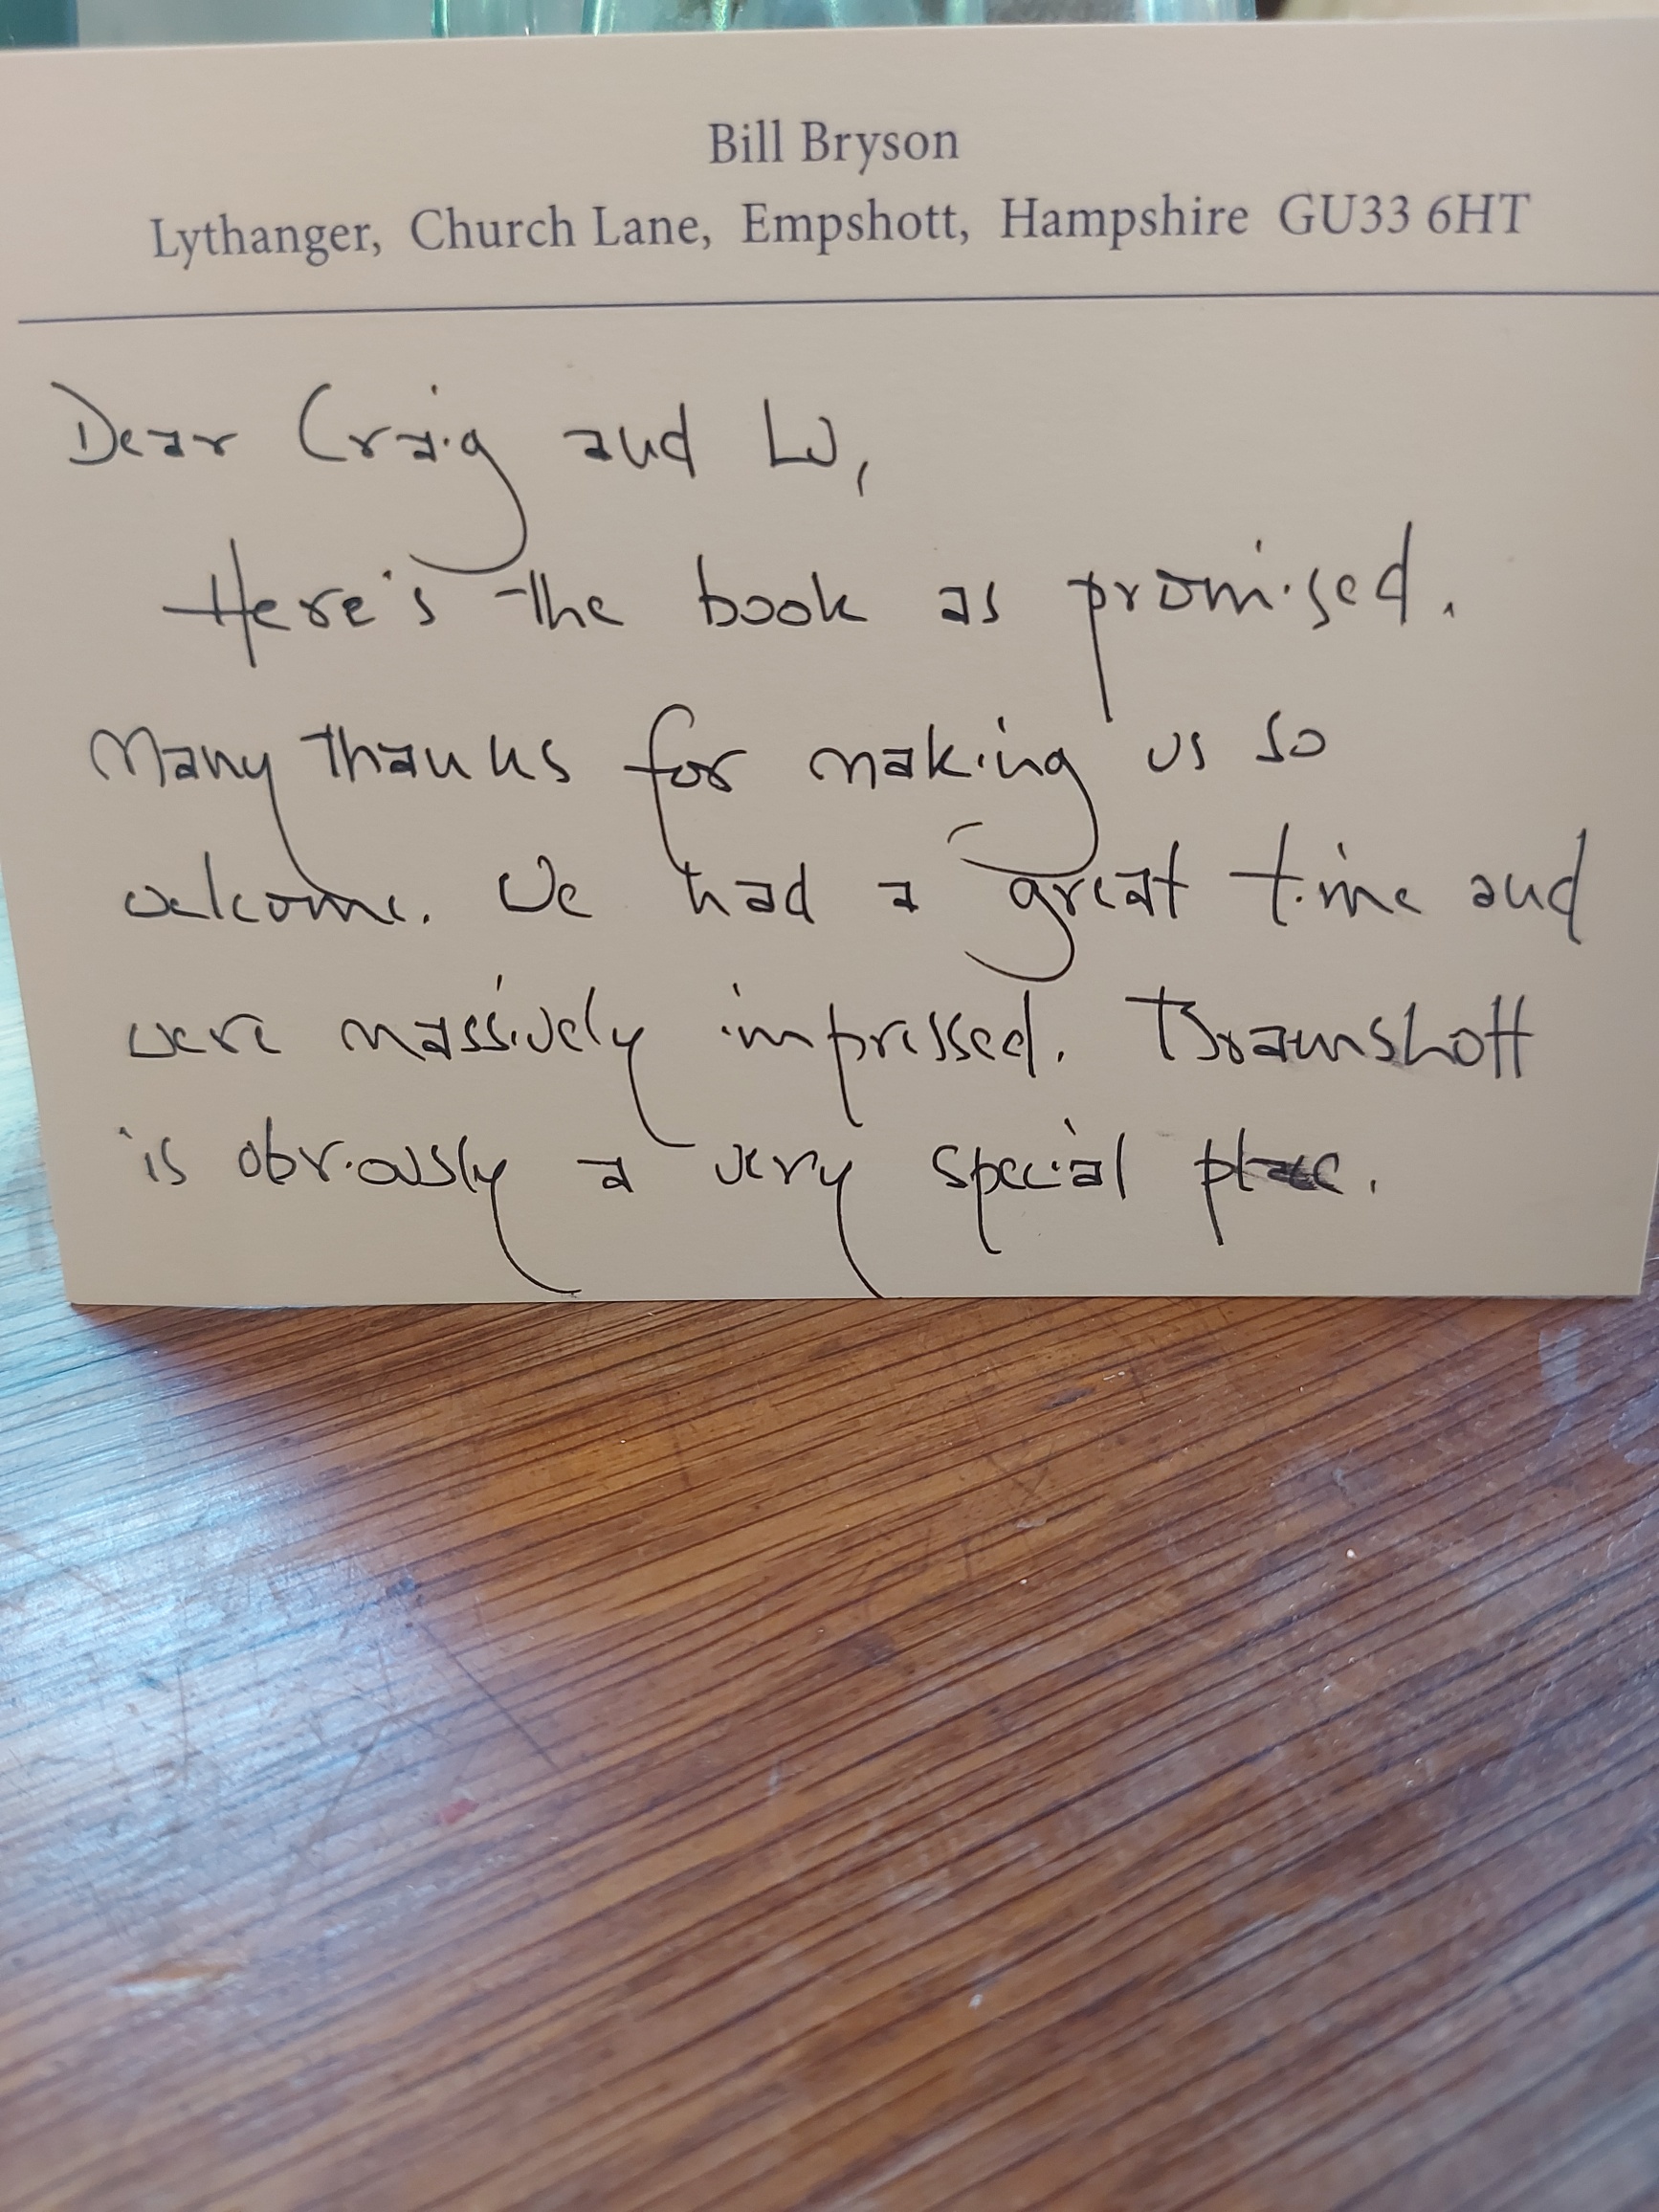 Bill Bryson
Lythanger, Church Lane, Empshott, Hampshire GU33 6HT
Dear Craig and
Here's the book as promised.
Many thanks for making us so
welcome. We had a great time and
were massively impressed. Bramshott
is obviously a very special place.